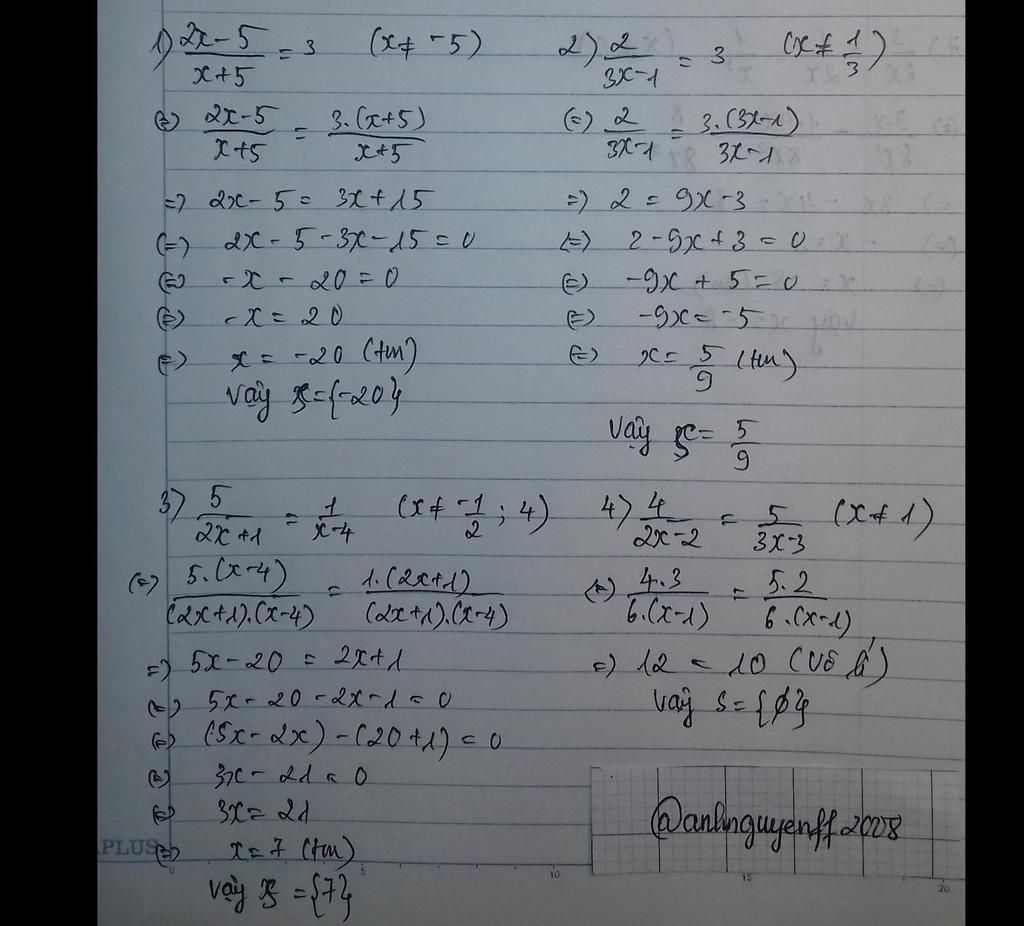 1) (2x-5)/(x+5) = 3 (x ≠ -5)
(=) (2x-5)/(x+5) = 3.(x+5)/(x+5)
=) 2x - 5 = 3x + 15
(=) 2x - 5 - 3x - 15 = 0
(=) -x - 20 = 0
(=) -x = 20
(=) x = -20 (tm)
Vậy S = {-20}
2) 2/(3x-1) = 3 (x ≠ 1/3)
(=) 2/(3x-1) = 3.(3x-1)/(3x-1)
=) 2 = 9x - 3
(=) 2 - 9x + 3 = 0
(=) -9x + 5 = 0
(=) -9x = -5
(=) x = 5/9 (tm)
Vậy S = 5/9
3) 5/(2x+1) = 1/(x-4) (x ≠ -1/2 ; 4)
(=) 5.(x-4)/(2x+1).(x-4) = 1.(2x+1)/(2x+1).(x-4)
=) 5x - 20 = 2x + 1
(=) 5x - 20 - 2x - 1 = 0
(=) (5x - 2x) - (20 + 1) = 0
(=) 3x - 21 = 0
(=) 3x = 21
(=) x = 7 (tm)
Vậy S = {7}
4) 4/(2x-2) = 5/(3x-3) (x ≠ 1)
(=) 4.3/6.(x-1) = 5.2/6.(x-1)
=) 12 = 10 (Vô lí)
Vậy S = {∅}
@anhnguyenff2008
PLUS
0 5 10 15 20